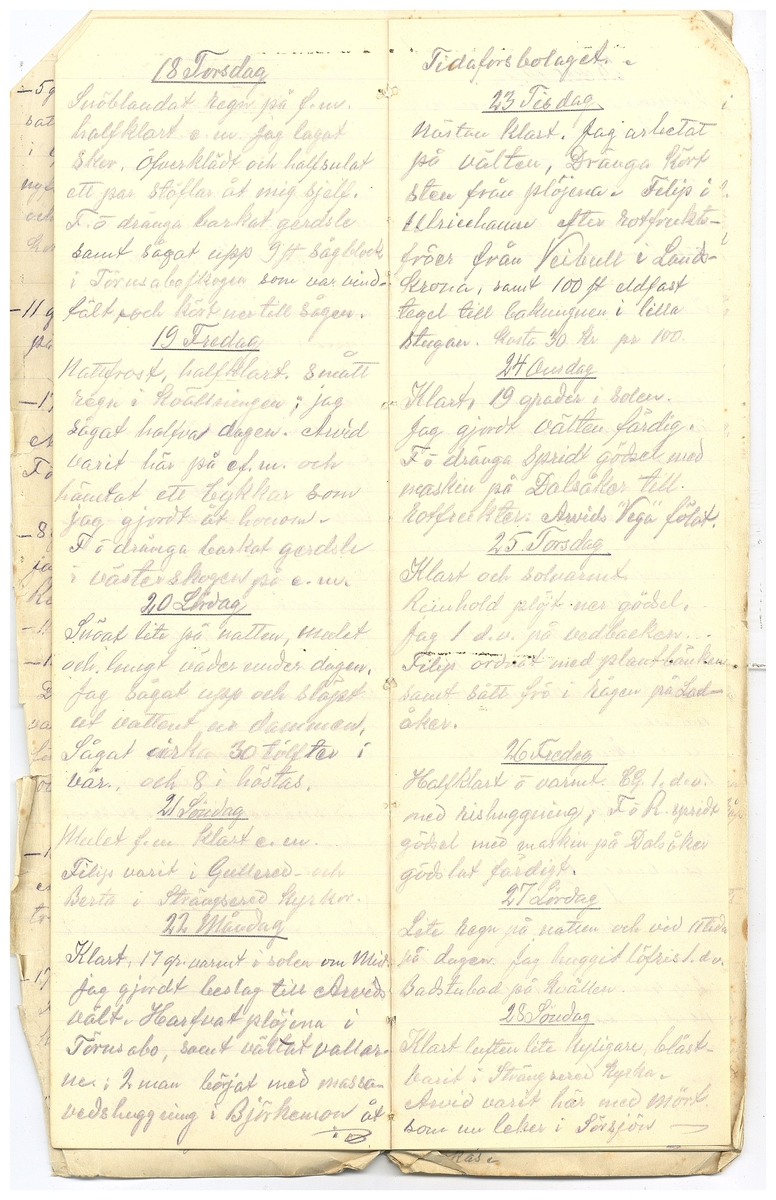 18 Torsdag
Snöblandat regn på f.m.
halfklart e.m. jag lagat
skor, öfverklädt och halfsulat
ett par stöflar åt mig sjelf.
F. ö dränga barkat gerdsle
samt sågat upp 9 st sågblock
i Törnsaboskogen som var vind-
fält, och kört ner till sågen.
19 Fredag
Nattfrost, halfklart. smått
regn i kvällningen; jag
sågat halfva dagen. Arvid
varit här på ef.m. och
hämtat ett tykkar som
jag gjordt åt honom.
F ö dränga barkat gerdsle
i västerskogen på e.m.
20 Lördag
Snöat lite på natten, mulet
och lungt väder under dagen.
jag sågat upp och släpt
ut vattent ur dammen.
Sågat cirka 30 tölfter i
vår, och 8 i höstas.
21 Söndag
Mulet f.m. klart e.m.
Filip varit i Gullered och
Berta i Strängsered kyrkor.
22 Måndag
Klart, 17 gr. varmt i solen om Mid.
jag gjordt beslag till Arvids
vält. Harfvat plöjena i
Törnsabo, samt vältat vallar-
ne; 2 man börjat med massa-
vedshuggning i Björkemon åt
Tidaforsbolaget.
23 Tisdag
Nästan klart. Jag arbetat
på välten, Dränga kört
sten från plöjena. Filip i
Ulricehamn efter rotfrukts-
fröer från Veibull i Lands-
krona, samt 100 st eldfast
tegel till bakungnen i lilla
stugan. Kosta 30 kr pr 100.
24 Onsdag
Klart, 19 grader i solen.
Jag gjordt välten färdig.
F ö dränga spridt gödsel med
maskin på Dalsåker till
rotfrukter. Arvids "Vega" fölat.
25 Torsdag
Klart och solvarmt.
Reinhold plöjt ner gödsel.
Jag 1 d.v. på vedbacken.
Filip ordnat med plantbänken
samt sått frö i rågen på Lad-
åker.
26 Fredag
Halfklart ö varmt. CG. 1. d.v.
med rishuggning, F ö R. spridt
gödsel med maskin på Dalsåker
gödslat färdigt.
27 Lördag
Lite regn på natten och vid 11tiden
på dagen. jag huggit löfris 1. d.v.
Badstubad på kvällen.
28 Söndag
Klart luften lite kyligare, blåst-
varit i Strängsered kyrka.
Arvid varit här med mört
som nu leker i Sörsjön